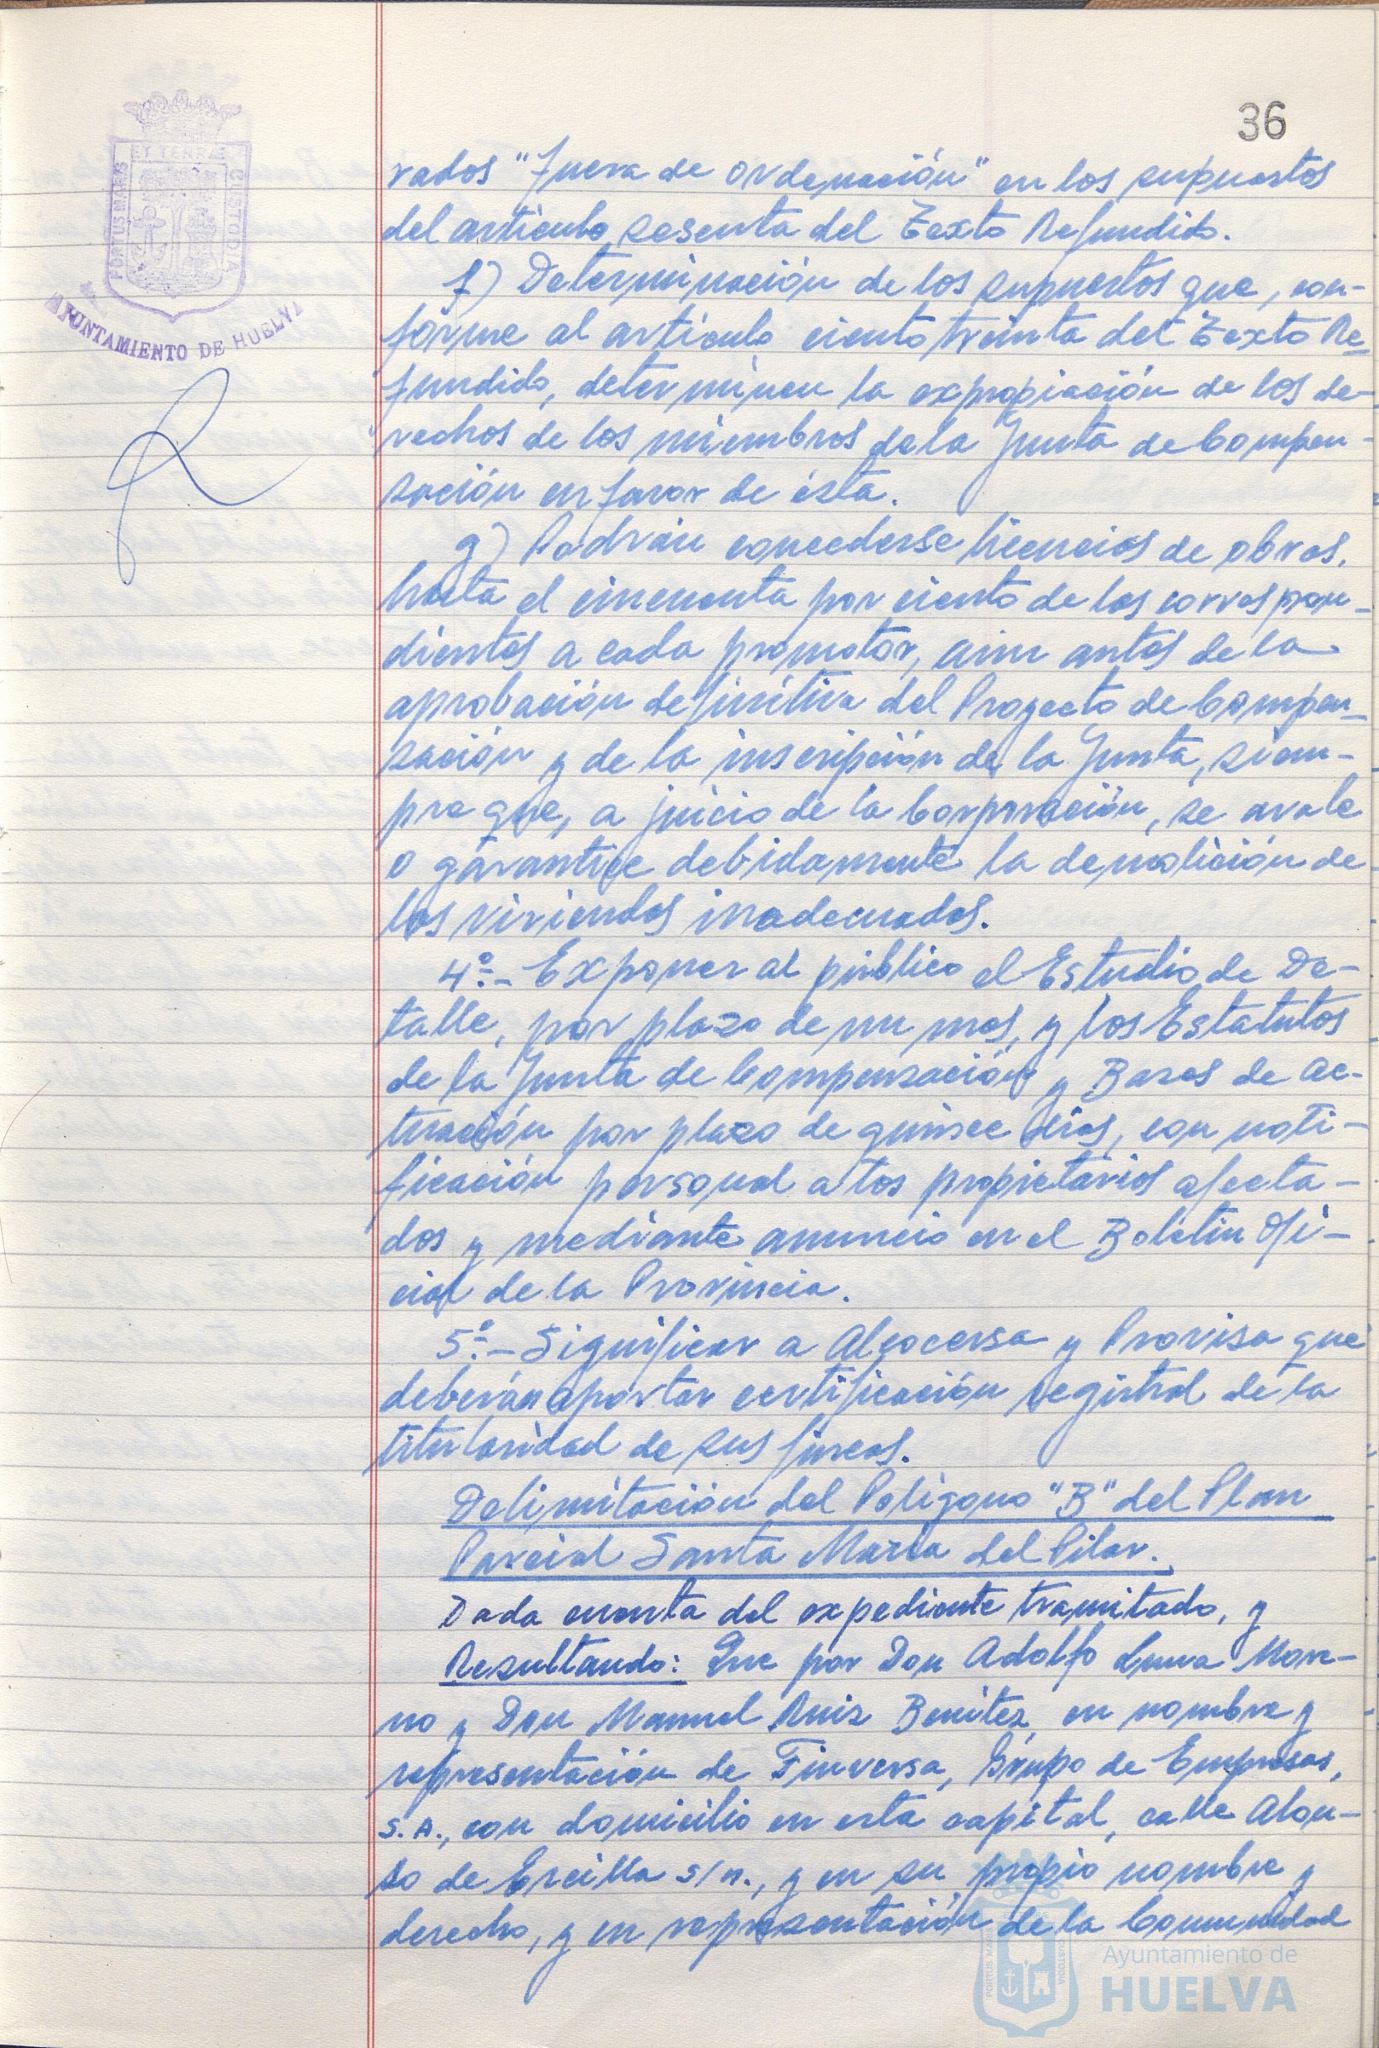 36
PORTUS MARIS ET TERRAE CUSTODIA
AYUNTAMIENTO DE HUELVA
rados "fuera de ordenación" en los supuestos
del artículo sesenta del Texto Refundido.
f) Determinación de los supuestos que, con-
forme al artículo ciento treinta del Texto Re-
fundido, determinen la expropiación de los de-
rechos de los miembros de la Junta de Compen-
sación en favor de ésta.
g) Podrán concederse licencias de obras,
hasta el cincuenta por ciento de las correspon-
dientes a cada promotor, aún antes de la
aprobación definitiva del Proyecto de Compen-
sación y de la inscripción de la Junta, siem-
pre que, a juicio de la Corporación, se avale
o garantice debidamente la demolición de
las viviendas inadecuadas.
4º.- Exponer al público el Estudio de De-
talle, por plazo de un mes, y los Estatutos
de la Junta de Compensación y Bases de Ac-
tuación por plazo de quince días, con noti-
ficación personal a los propietarios afecta-
dos y mediante anuncio en el Boletín Ofi-
cial de la Provincia.
5º.- Significar a Alcocersa y Provisa que
deberán aportar certificación registral de la
titularidad de sus fincas.
Delimitación del Polígono "B" del Plan
Parcial Santa María del Pilar.
Dada cuenta del expediente tramitado, y
Resultando: Que por Don Adolfo Luna More-
no y Don Manuel Ruiz Benítez en nombre y
representación de Finversa, Grupo de Empresas,
S.A., con domicilio en esta capital, calle Alon-
so de Ercilla s/n., y en su propio nombre y
derecho, y en representación de la Comunidad
Ayuntamiento de
HUELVA